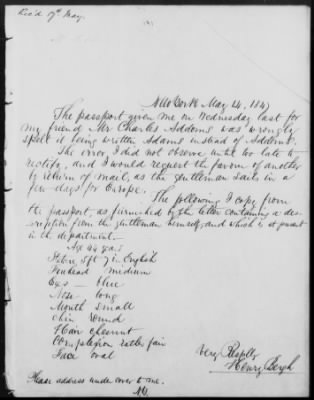 Rec'd 17th May.
New York May 14, 1847
The passport given me on Wednesday last for
my friend Mr Charles Addoms was wrongly
spelt it being written Adams instead of Addoms.
The error I did not observe until too late to
rectify, and I would request the favour of another
by return of mail, as the gentleman sails in a
few days for Europe.
The following I copy from
the passport, as furnished by the letter containing a des-
cription from the gentleman himself, and which is at present
in the department.
Age 44 years
Stature 5 ft 7 in English
Forehead medium
Eyes — blue
Nose long
Mouth small
Chin round
Hair chesnut
Complexion rather fair
Face oval
Very Resptly
Henry Bergh
Please address under cover to me.